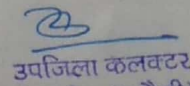 उपजिला कलक्टर